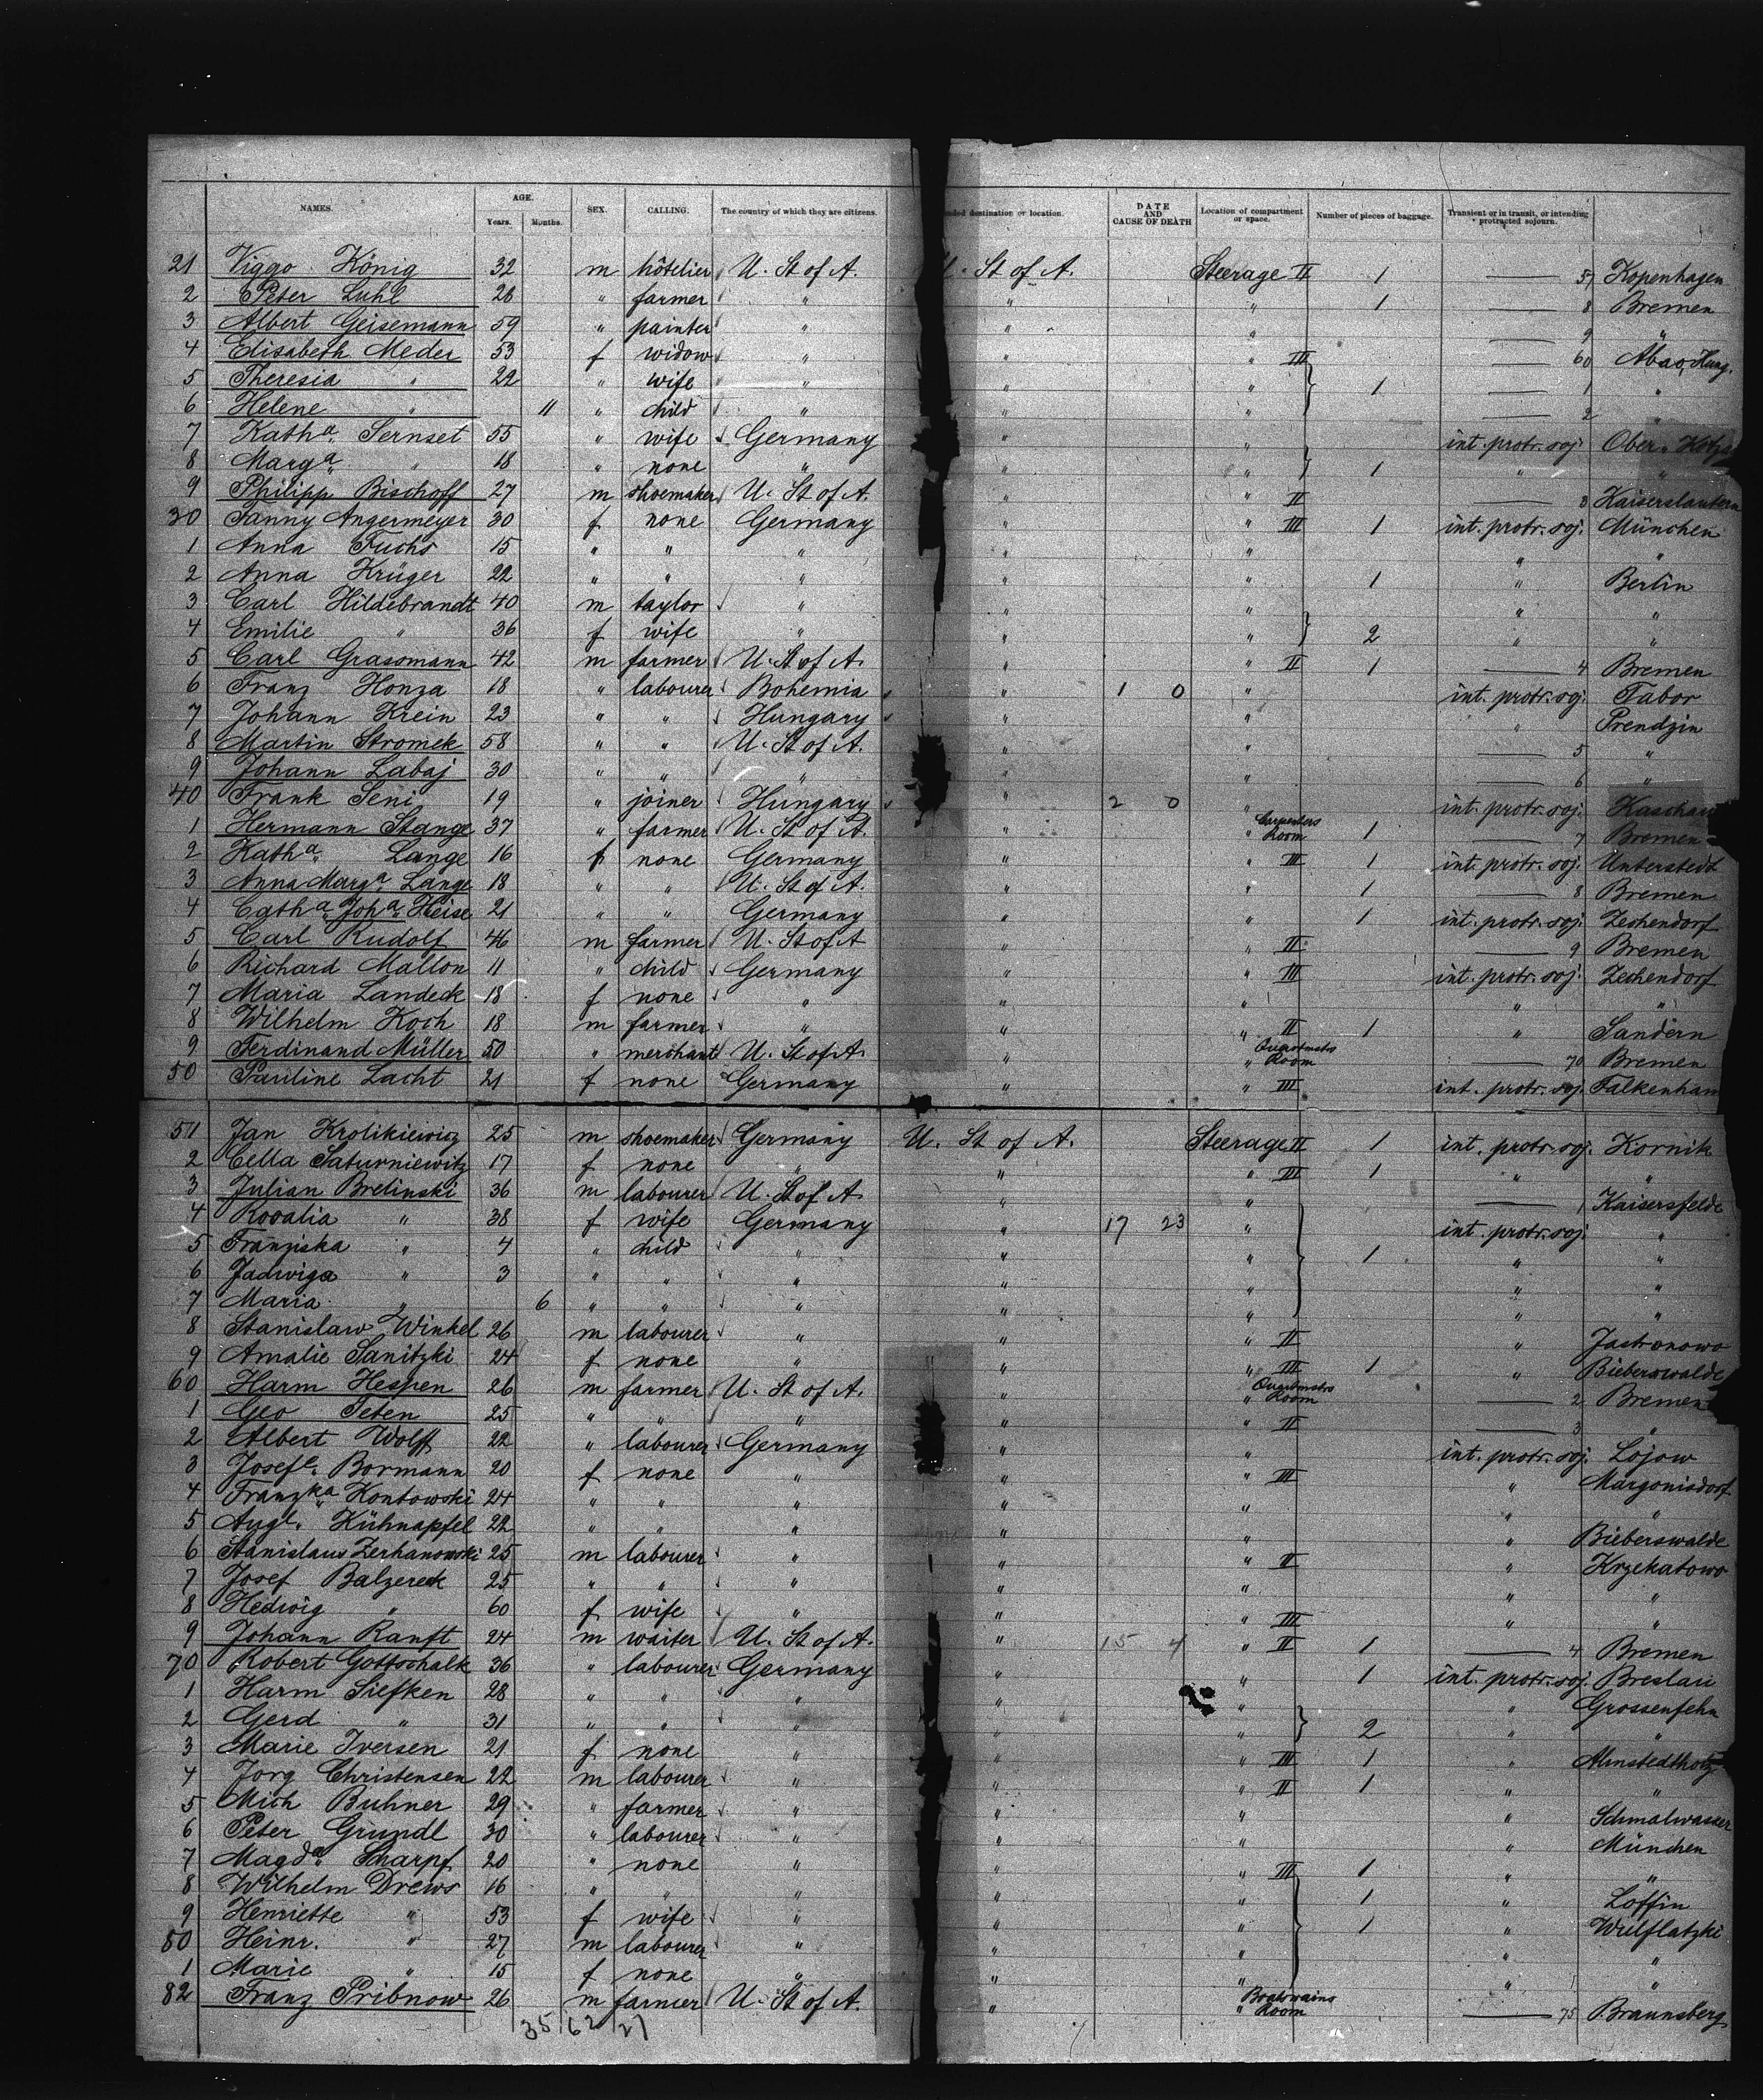 NAMES. AGE. Years. Months. SEX. CALLING. The country of which they are citizens. nded destination or location. DATE AND CAUSE OF DEATH Location of compartment or space. Number of pieces of baggage. Transient or in transit, or intending protracted sojourn.
21 Viggo König 32 m hôtelier U. St of A. St of A. Steerage II 1 — 57 Kopenhagen
2 Peter Luhl 28 " farmer " " " 1 — 8 Bremen
3 Albert Geisemann 59 " painter " " " — 9 "
4 Elisabeth Meder 53 f widow " " " III — 60 Abao, Hung.
5 Theresia " 22 " wife " " " 1 — 1 "
6 Helene " 11 " child " " " — 2 "
7 Katha. Sernset 55 " wife Germany " " int. protr. soj. Ober
8 Marga. " 18 " none " " " 1 " "
9 Philipp Bischoff 27 m shoemaker U. St of A. " " II — 3 Kaiserslautern
30 Fanny Angermeyer 30 f none Germany " " III 1 int. protr. soj. München
1 Anna Fuchs 15 " " " " " " "
2 Anna Krüger 22 " " " " " 1 " Berlin
3 Carl Hildebrandt 40 m taylor " " " " "
4 Emilie " 36 f wife " " " 2 " "
5 Carl Grasomann 42 m farmer U. St of A. " " II 1 — 4 Bremen
6 Franz Honza 18 " labourer Bohemia " 1 0 " int. protr. soj. Tabor
7 Johann Krein 23 " " Hungary " " " Prendzin
8 Martin Stromek 58 " " U. St of A. " " — 5 "
9 Johann Labaj 30 " " " " " — 6 "
40 Frank Seni 19 " joiner Hungary " 2 0 " int. protr. soj. Kaschau
1 Hermann Stange 37 " farmer U. St of A. " " Carpenters Room 1 — 7 Bremen
2 Katha. Lange 16 f none Germany " " III 1 int. protr. soj. Unterstedt
3 Anna Marga. Lange 18 " " U. St of A. " " 1 — 8 Bremen
4 Catha. Joha. Heise 21 " " Germany " " 1 int. protr. soj. Zechendorf
5 Carl Rudolf 46 m farmer U. St of A " " II — 9 Bremen
6 Richard Mallon 11 " child Germany " " III int. protr. soj. Zechendorf
7 Maria Landeck 18 f none " " " " "
8 Wilhelm Koch 18 m farmer " " " II 1 " Sandern
9 Ferdinand Müller 50 " merchant U. St of A. " " Quartmstrs Room — 70 Bremen
50 Pauline Lacht 21 f none Germany " " III int. protr. soj. Falkenham
51 Jan Krolikiewicz 25 m shoemaker Germany U. St of A. Steerage II 1 int. protr. soj. Kornik
2 Cella Saturniewitz 17 f none " " " III 1 " "
3 Julian Brelinski 36 m labourer U. St of A. " " — 1 Kaisersfelde
4 Rosalia " 38 f wife Germany " 17 23 " int. protr. soj. "
5 Franziska " 4 " child " " " 1 " "
6 Jadwiga " 3 " " " " " " "
7 Maria " 6 " " " " " " "
8 Stanislaw Winkel 26 m labourer " " " II " Jastronowo
9 Amalie Sanitzki 24 f none " " " III 1 " Bieberswalde
60 Harm Hespen 26 m farmer U. St of A. " " Quartmstrs Room — 2 Bremen
1 Geo Peten 25 " " " " " II — 3 "
2 Albert Wolff 22 " labourer Germany " " int. protr. soj. Lojow
3 Josefe. Bormann 20 f none " " " III " Margonisdorf
4 Franzka. Kontowski 24 " " " " " " "
5 Auge. Kühnapfel 22 " " " " " " Bieberswalde
6 Stanislaus Zerhanowski 25 m labourer " " " II " Krzekatowo
7 Josef Balzereck 25 " " " " " " "
8 Hedwig " 60 f wife " " " III " "
9 Johann Ranft 24 m waiter U. St of A. " 15 4 " II 1 — 4 Bremen
70 Robert Gottschalk 36 " labourer Germany " " 1 int. protr. soj. Breslau
1 Harm Siefken 28 " " " " " " Grossenfehn
2 Gerd " 31 " " " " " 2 " "
3 Marie Iversen 21 f none " " " III 1 " Almstedtholz
4 Jorg Christensen 22 m labourer " " " II 1 " "
5 Mich Buhner 29 " farmer " " " " Schmalwasser
6 Peter Grundl 30 " labourer " " " " München
7 Magda. Scharpf 20 " none " " " III 1 " "
8 Wilhelm Drews 16 " " " " " 1 " Loffin
9 Henriette " 53 f wife " " " 1 " Wulflatzki
80 Heinr. " 27 m labourer " " " " "
1 Marie " 15 f none " " " " "
82 Franz Pribnow 26 m farmer U. St of A. " " Boatswains Room — 75 Braunsberg
35 62 27